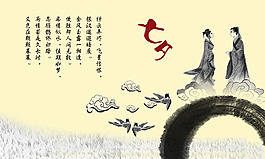 七夕
纤云弄巧，飞星传恨，
银汉迢迢暗度。
金风玉露一相逢，
便胜却人间无数。
柔情似水，佳期如梦，
忍顾鹊桥归路。
两情若是久长时，
又岂在朝朝暮暮。